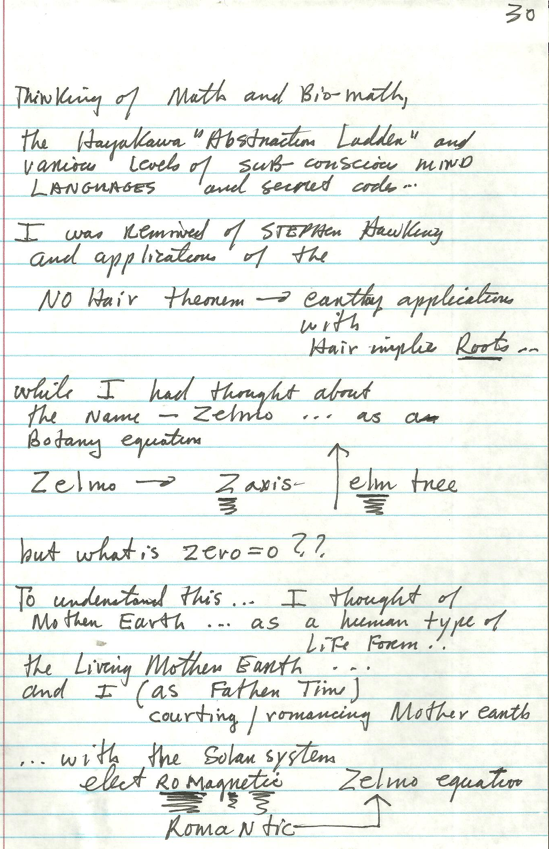 30
Thinking of Math and Bio-math,
the Hayakawa "Abstraction Ladder" and
various levels of sub-conscious MIND
LANGUAGES and secret codes...
I was REMINDED of STEPHEN HawKing
and applications of the
NO Hair theorem → earthy applications
with
Hair implies Roots...
while I had thought about
the Name - Zelmo ... as a
Botany equation
Zelmo → Z axis- ↑ elm tree
but what is zero = 0 ??
To understand this... I thought of
Mother Earth ... as a human type of
Life Form..
the Living Mother Earth ...
and I (as Father Time)
courting / romancing Mother earth
... with the Solar system
elect RoMagnetic Zelmo equation
RomaNtic